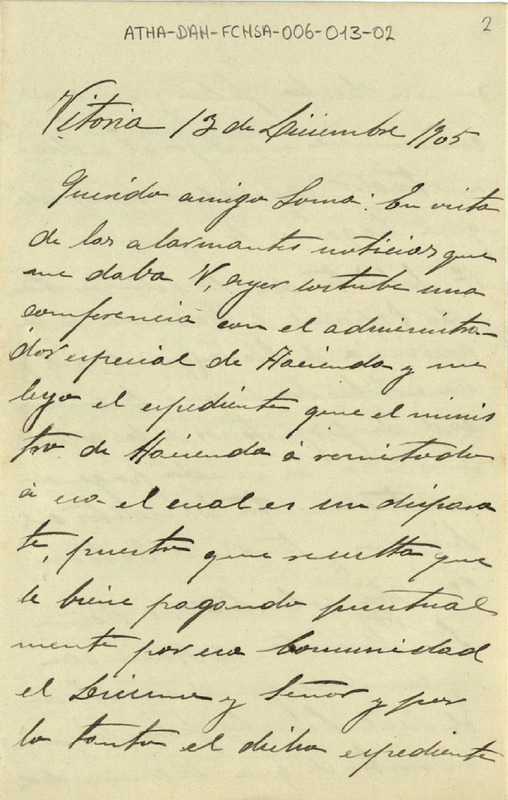 ATHA-DAH-FCHSA-006-013-02
2
Vitoria 13 de Diciembre 1905
Querido amigo Soma: En vista
de las alarmantes noticias que
me daba V, ayer costube una
comferencia con el administra-
dor especial de Hacienda y me
leyo el espediente que el minis
tro de Hacienda á remitido
á esa el cual es un dispara
te, puesto que resulta que
le biene pagando puntual
mente por esa Comunidad
el Diezmo y Señor y por
lo tanto el dicho espediente